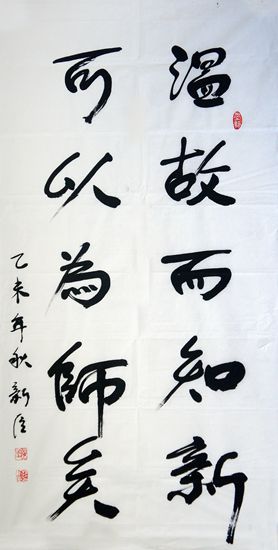 溫故而知新
可以為師矣
乙未年秋新